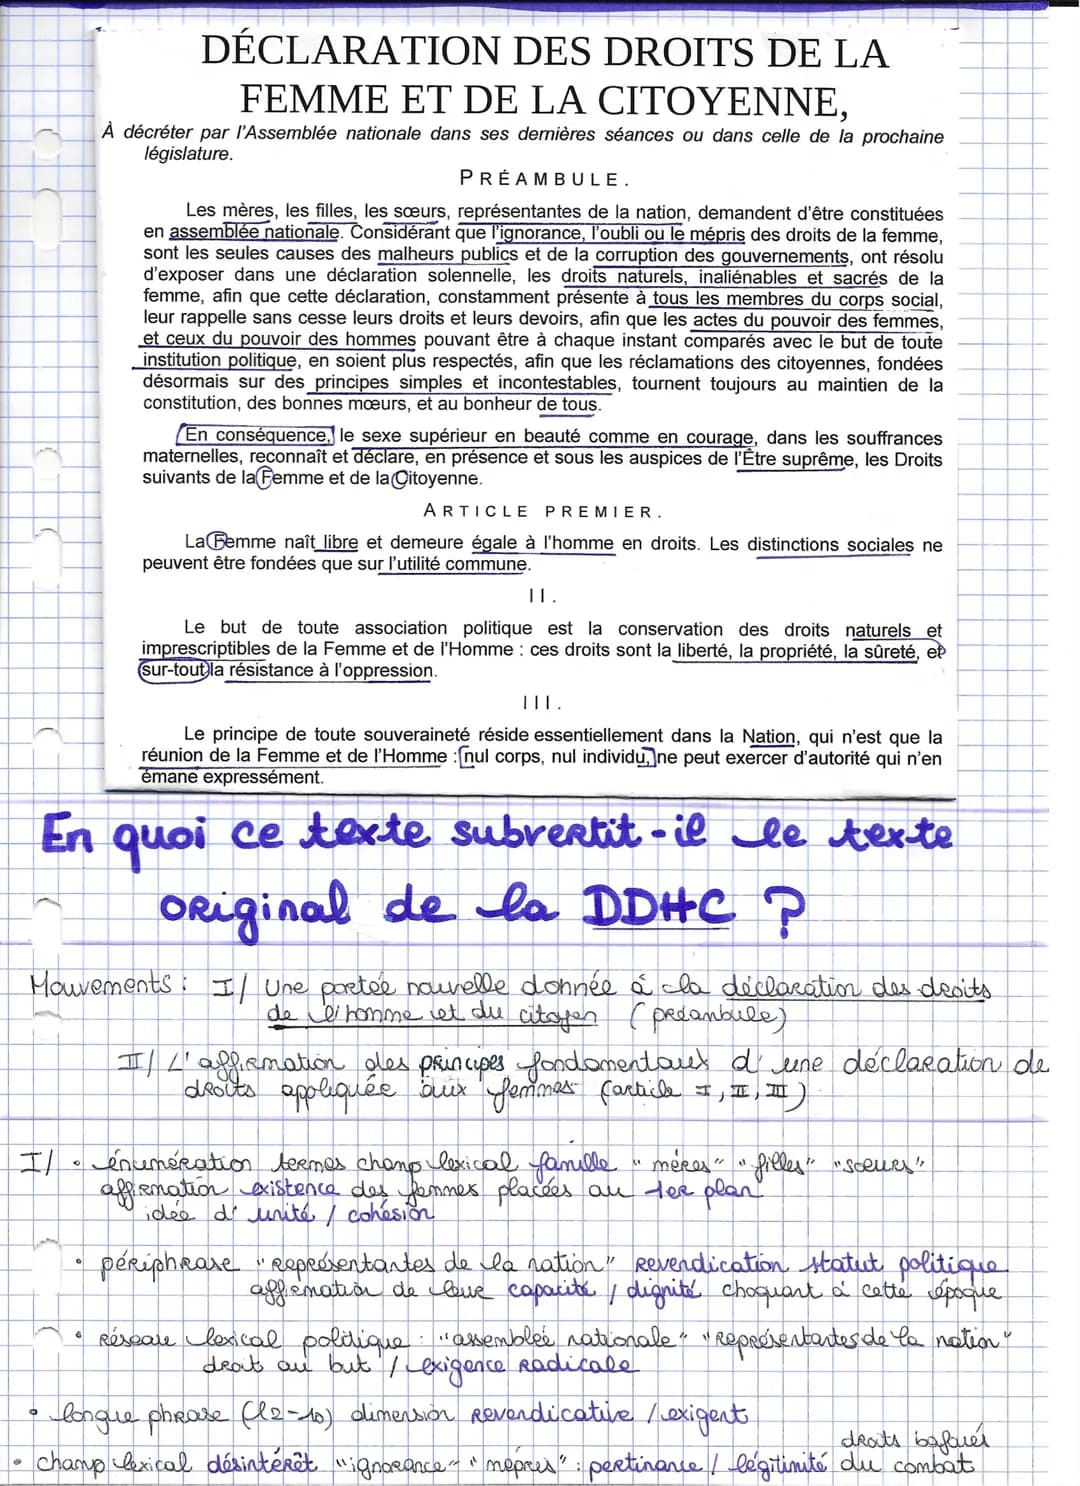 DÉCLARATION DES DROITS DE LA
FEMME ET DE LA CITOYENNE,
À décréter par l'Assemblée nationale dans ses dernières séances ou dans celle de la prochaine
législature.
PRÉAMBULE.
Les mères, les filles, les sœurs, représentantes de la nation, demandent d'être constituées
en assemblée nationale. Considérant que l'ignorance, l'oubli ou le mépris des droits de la femme,
sont les seules causes des malheurs publics et de la corruption des gouvernements, ont résolu
d'exposer dans une déclaration solennelle, les droits naturels, inaliénables et sacrés de la
femme, afin que cette déclaration, constamment présente à tous les membres du corps social,
leur rappelle sans cesse leurs droits et leurs devoirs, afin que les actes du pouvoir des femmes,
et ceux du pouvoir des hommes pouvant être à chaque instant comparés avec le but de toute
institution politique, en soient plus respectés, afin que les réclamations des citoyennes, fondées
désormais sur des principes simples et incontestables, tournent toujours au maintien de la
constitution, des bonnes mœurs, et au bonheur de tous.
En conséquence, le sexe supérieur en beauté comme en courage, dans les souffrances
maternelles, reconnaît et déclare, en présence et sous les auspices de l'Être suprême, les Droits
suivants de la Femme et de la Citoyenne.
ARTICLE PREMIER.
La Femme naît libre et demeure égale à l'homme en droits. Les distinctions sociales ne
peuvent être fondées que sur l'utilité commune.
II.
Le but de toute association politique est la conservation des droits naturels et
imprescriptibles de la Femme et de l'Homme : ces droits sont la liberté, la propriété, la sûreté, et
sur-tout la résistance à l'oppression.
III.
Le principe de toute souveraineté réside essentiellement dans la Nation, qui n'est que la
réunion de la Femme et de l'Homme : [nul corps, nul individu,] ne peut exercer d'autorité qui n'en
émane expressément.
En quoi ce texte subvertit-il le texte
original de la DDHC ?
Mouvements : I/ Une portée nouvelle donnée à la déclaration des droits
de l'homme et du citoyen (préambule)
II/ L'affirmation des principes fondamentaux d'une déclaration de
droits appliquée aux femmes (article I, II, III)
I/ • énumération termes champ lexical famille "mères" "filles" "sœurs"
affirmation existence des femmes placées au 1er plan
idée d'unité / cohésion
• périphrase "représentantes de la nation" revendication statut politique
affirmation de leur capacité / dignité choquant à cette époque
• réseau lexical politique : "assemblée nationale" "représentantes de la nation"
droit au but / exigence radicale
• longue phrase (l2-10) dimension revendicative / exigent
droits bafoués
• champ lexical désintérêt "ignorance" "mépris" : pertinance / légitimité du combat